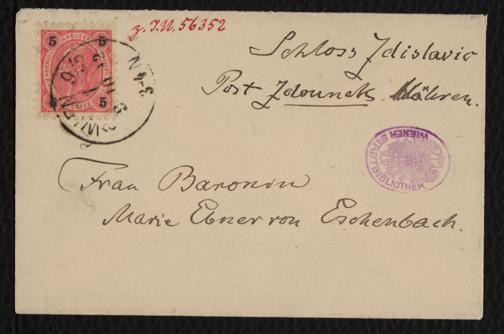 z. I.N. 56352
Schloss Zdislavic
Post Zdounek Mähren.
5 5
5 5
WIEN
3-4 N
WIENER STADTBIBLIOTHEK
Frau Baronin
Marie Ebner von Eschenbach.